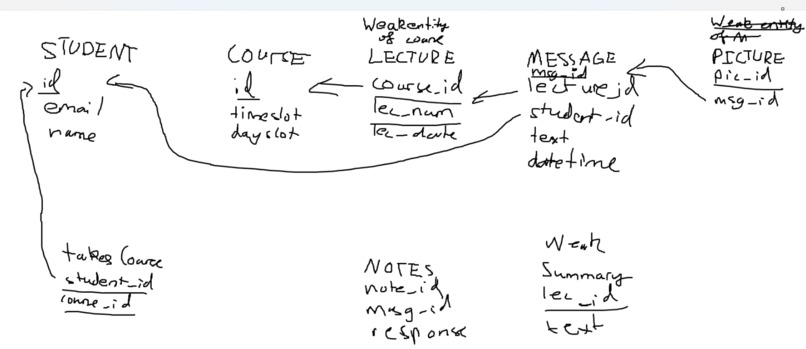 STUDENT
id
email
name
COURSE
id
timeslot
dayslot
Weak entity
of course
LECTURE
course_id
lec_num
lec_date
MESSAGE
msg_id
lecture_id
student_id
text
datetime
Weak entity
of M
PICTURE
pic_id
msg_id
takes Course
student_id
course_id
NOTES
note_id
msg_id
response
Weak
Summary
lec_id
text